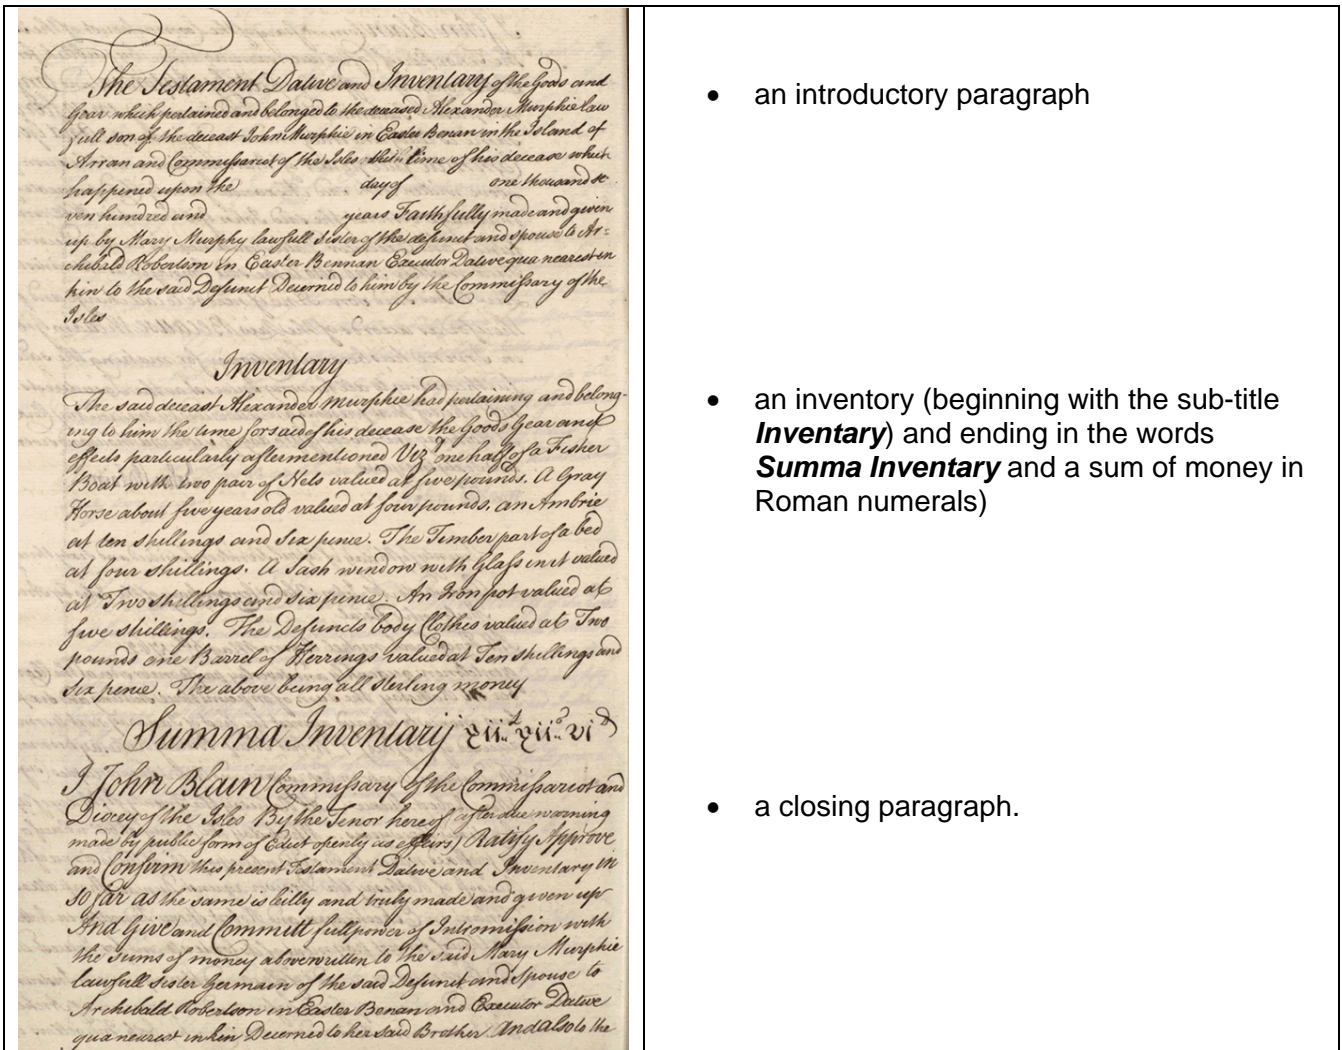 The Testament Dative and Inventary of the Goods and
Gear which pertained and belonged to the deceased Alexander Murphie law
full son of the deceast John Murphie in Easter Benan in the Island of
Arran and Commissariot of the Isles the time of his decease which
happened upon the day of one thousand se
ven hundred and years Faithfully made and given
up by Mary Murphy lawfull sister of the defunct and spouse to Ar=
chibald Robertson in Easter Bennan Executor Dative qua nearest in
kin to the said Defunct Decerned to him by the Commissary of the
Isles
Inventary
The said deceast Alexander Murphie had pertaining and belong-
ing to him the time forsaid of his decease the Goods Gear and
effects particularly aftermentioned Vizt one half of a Fisher
Boat with two pair of Nets valued at five pounds. A Gray
Horse about five years old valued at four pounds. an Ambrie
at ten shillings and six pence. The Timber part of a bed
at four shillings. A Sash window with Glass in it valued
at Two shillings and six pence. An Iron pot valued at
five shillings. The Defuncts body Clothes valued at Two
pounds one Barrel of Herrings valued at Ten shillings and
six pence. The above being all sterling money
Summa Inventarij xii£ xiis vid
I John Blain Commissary of the Commissariot and
Diocey of the Isles By the Tenor hereof (after due warning
made by public form of Edict openly as effeirs) Ratify Approve
and Confirm this present Testament Dative and Inventary in
so far as the same is leilly and truly made and given up
And Give and Committ full power of Intromission with
the sums of money abovewritten to the said Mary Murphie
lawfull sister German of the said Defunct and spouse to
Archibald Robertson in Easter Benan and Executor Dative
qua nearest in kin Decerned to her said Brother. And also to the
• an introductory paragraph
• an inventory (beginning with the sub-title
Inventary) and ending in the words
Summa Inventary and a sum of money in
Roman numerals)
• a closing paragraph.